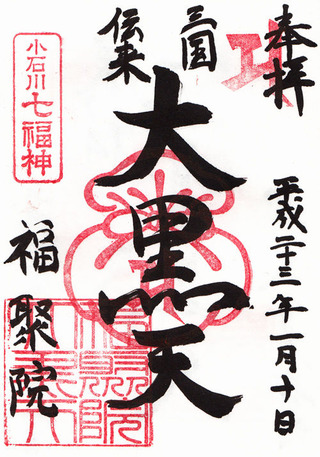 奉拝
平成二十三年一月十日
三国
伝来
大黒天
小石川七福神
福聚院